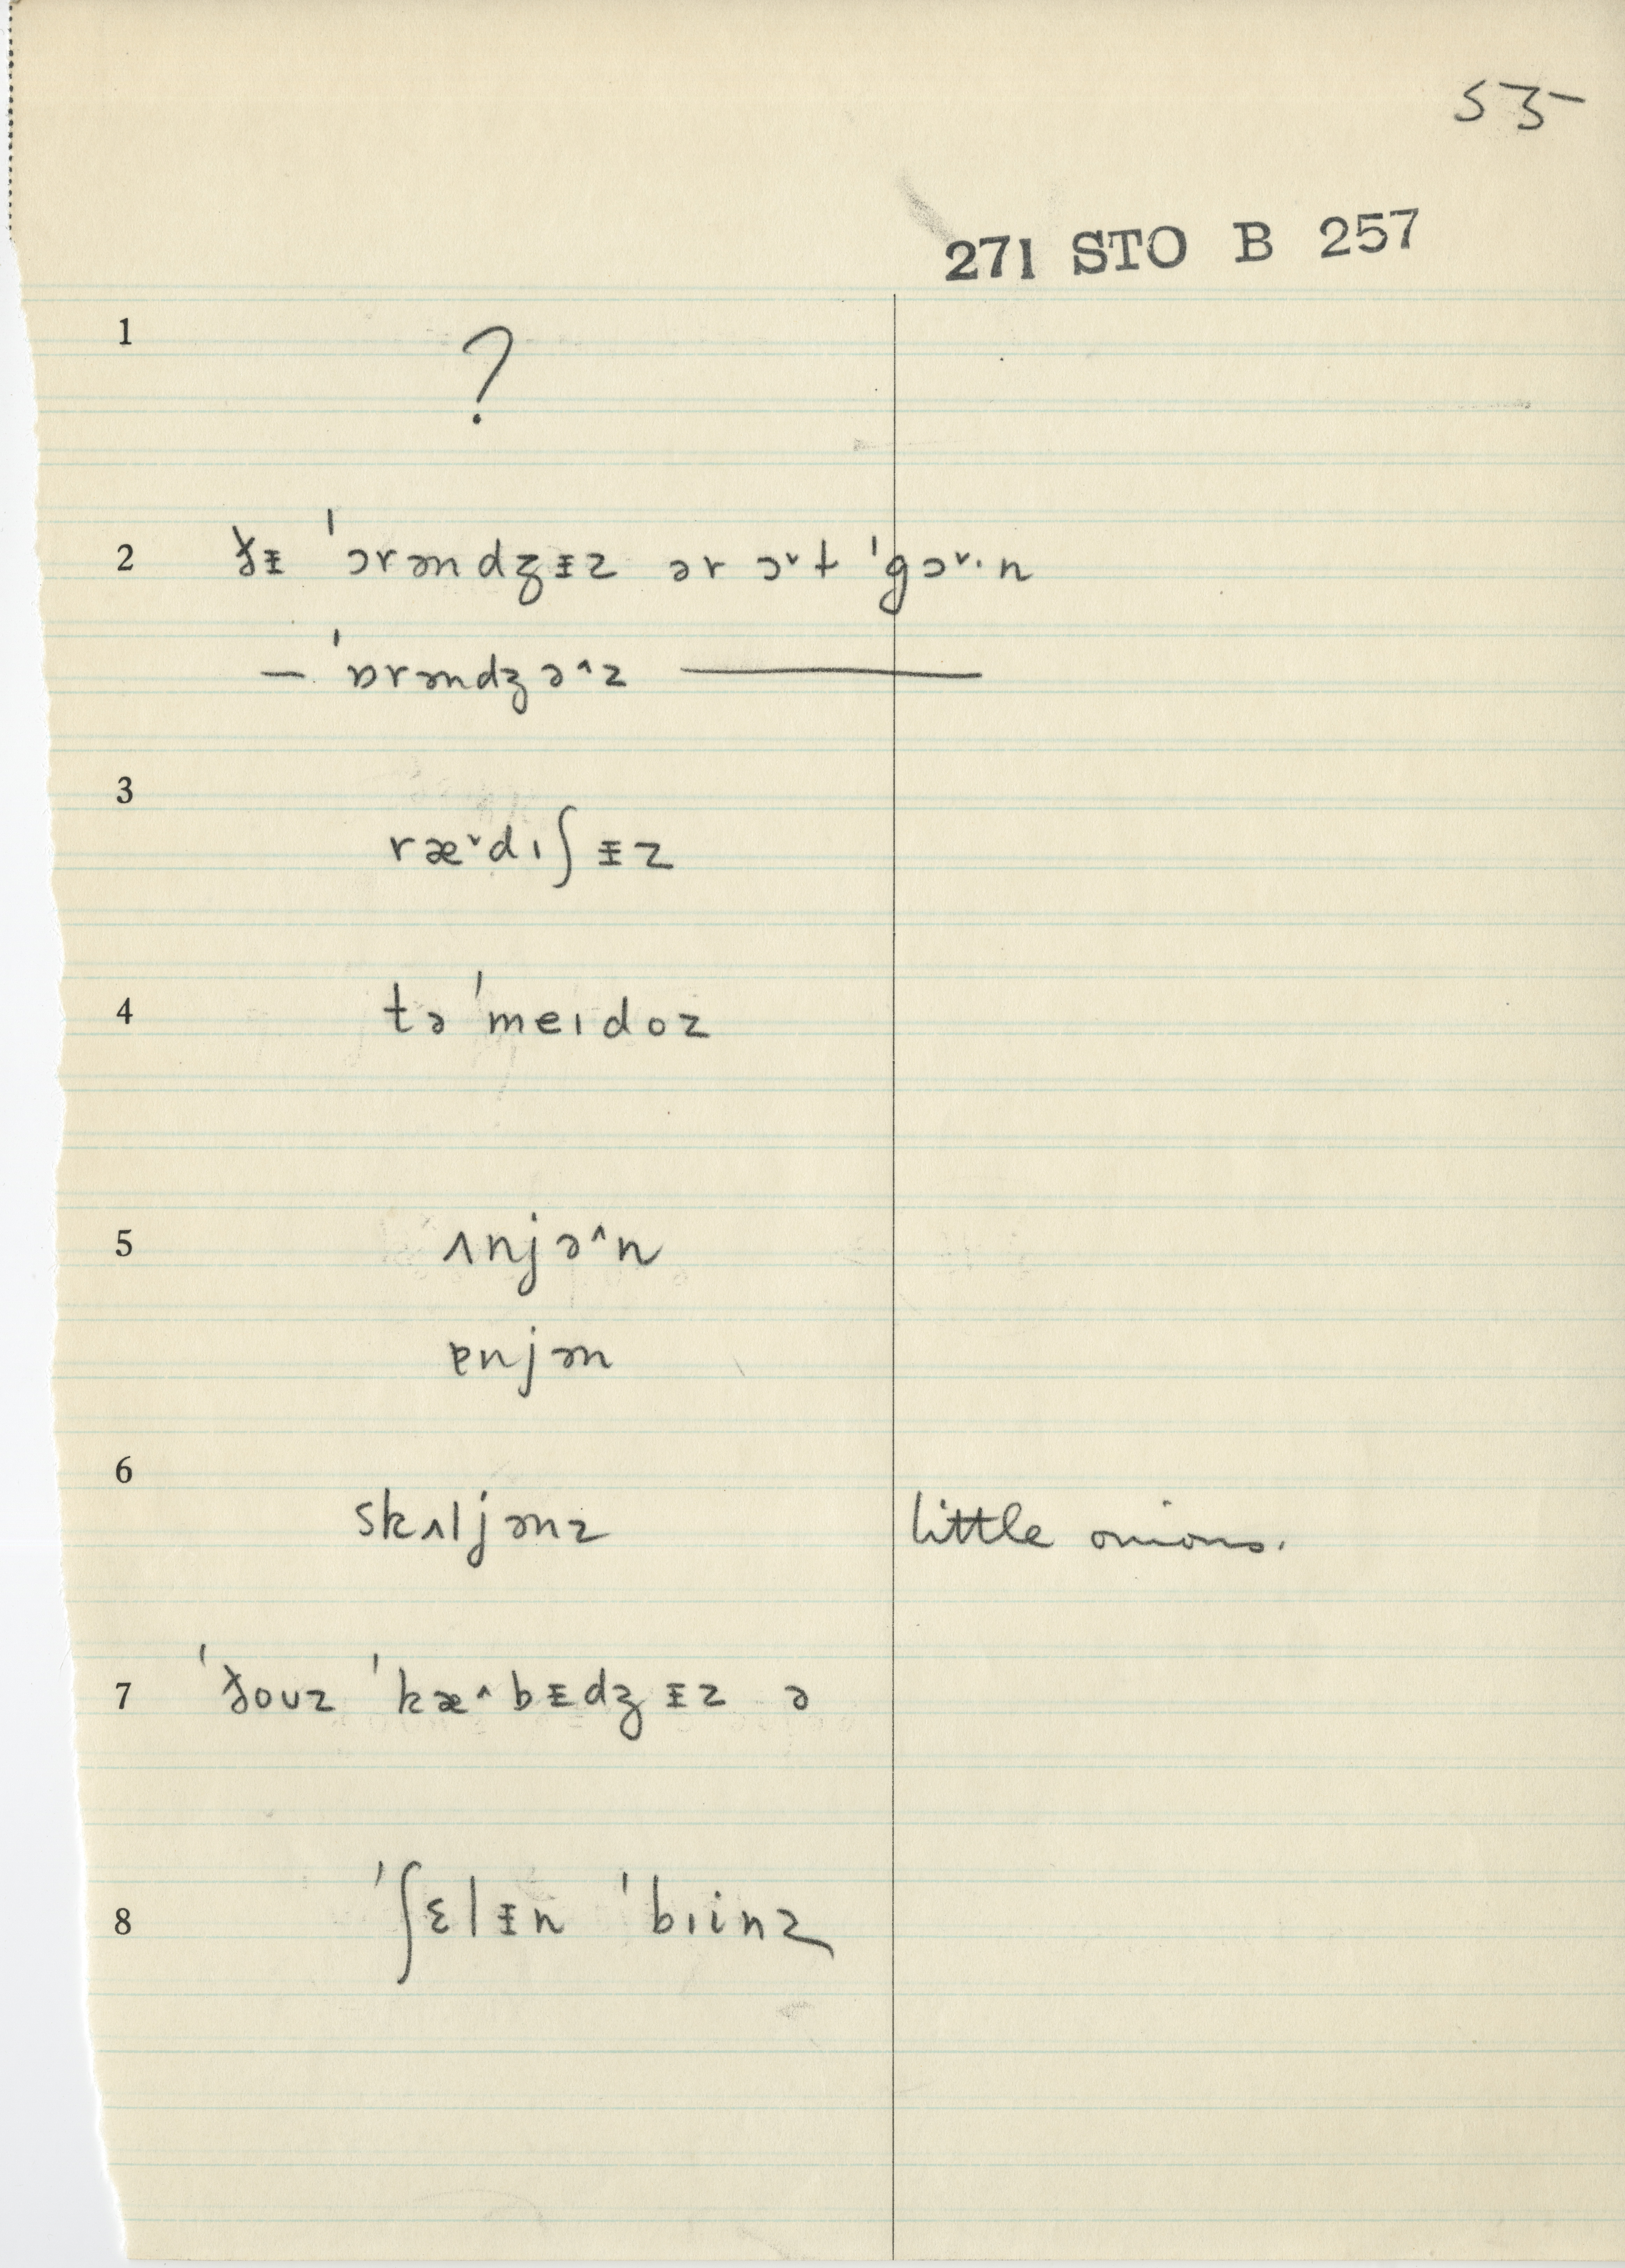 55
271 STO B 257
1 ?
2 ðᵻ ˈɔrəndʒᵻz ər ɔ˅t ˈgɔ˅·n
— ˈɒrəndʒə^z —
3 ræ˅dɪʃᵻz
4 təˈmeɪdoz
5 ʌnjə^n
ɐnjən
6 skʌljənz little onions.
7 ˈðoʊz ˈkæ^bᵻdʒᵻz ə
8 ˈʃɛlᵻn ˈbɪinz